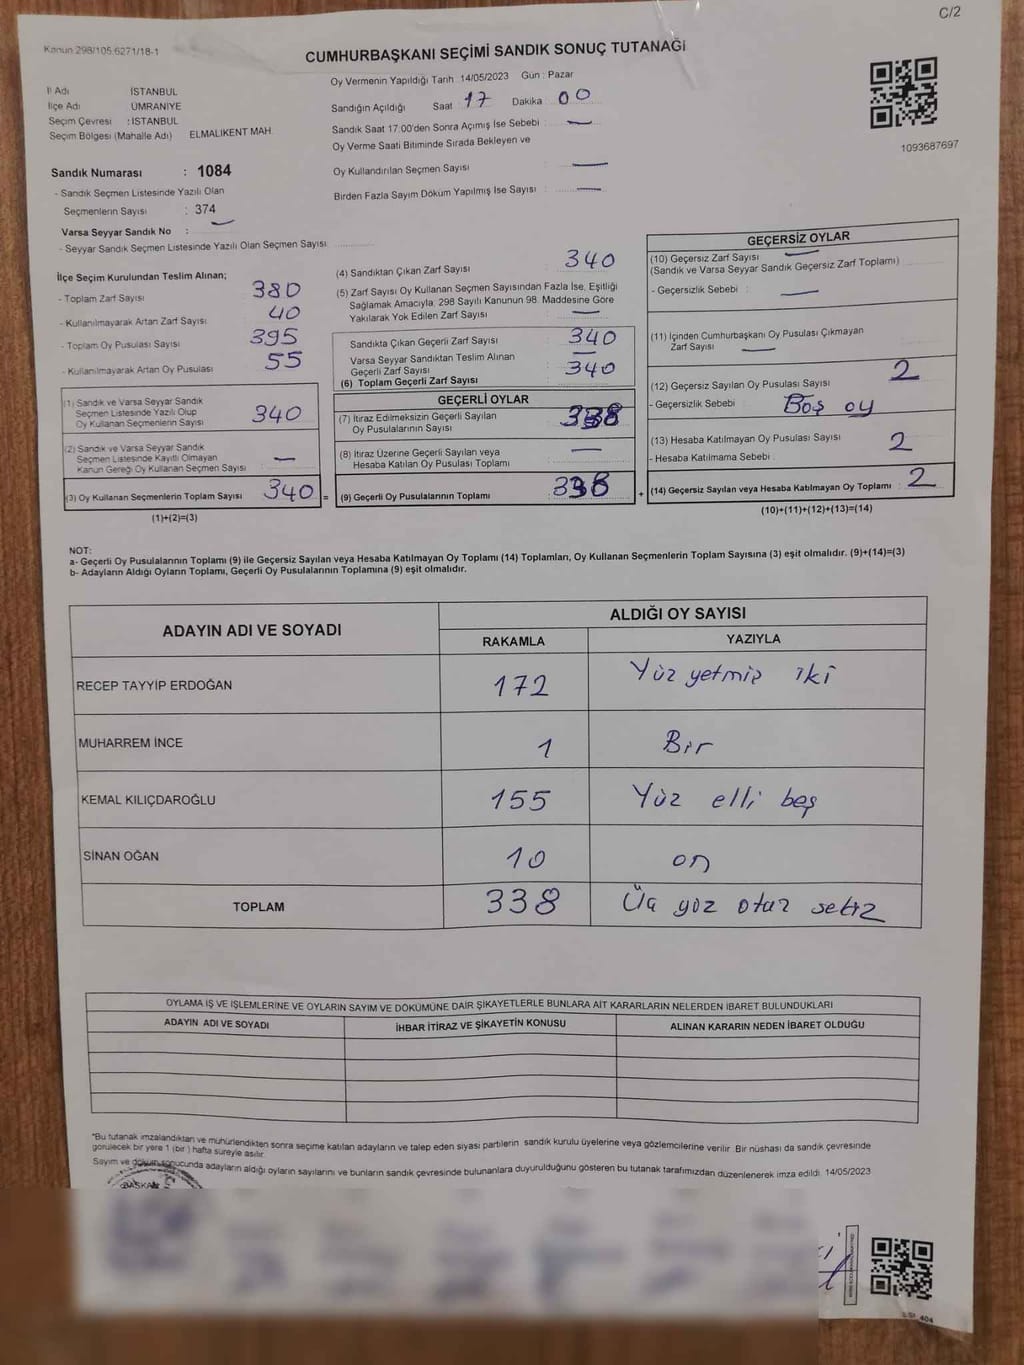 C/2
Kanun 298/105.6271/18-1
CUMHURBAŞKANI SEÇİMİ SANDIK SONUÇ TUTANAĞI
İl Adı İSTANBUL
İlçe Adı ÜMRANİYE
Seçim Çevresi : İSTANBUL
Seçim Bölgesi (Mahalle Adı) ELMALIKENT MAH.
Oy Vermenin Yapıldığı Tarih : 14/05/2023 Gün : Pazar
Sandığın Açıldığı Saat 17 Dakika 00
Sandık Saat 17.00'den Sonra Açımış İse Sebebi : —
Oy Verme Saati Bitiminde Sırada Bekleyen ve
Oy Kullandırılan Seçmen Sayısı —
Birden Fazla Sayım Döküm Yapılmış İse Sayısı : —
1093687697
Sandık Numarası : 1084
- Sandık Seçmen Listesinde Yazılı Olan
Seçmenlerin Sayısı : 374
Varsa Seyyar Sandık No : —
- Seyyar Sandık Seçmen Listesinde Yazılı Olan Seçmen Sayısı
İlçe Seçim Kurulundan Teslim Alınan;
- Toplam Zarf Sayısı 380
- Kullanılmayarak Artan Zarf Sayısı 40
- Toplam Oy Pusulası Sayısı 395
- Kullanılmayarak Artan Oy Pusulası 55
(1) Sandık ve Varsa Seyyar Sandık
Seçmen Listesinde Yazılı Olup
Oy Kullanan Seçmenlerin Sayısı 340
(2) Sandık ve Varsa Seyyar Sandık
Seçmen Listesinde Kayıtlı Olmayan
Kanun Gereği Oy Kullanan Seçmen Sayısı —
(3) Oy Kullanan Seçmenlerin Toplam Sayısı 340 =
(1)+(2)=(3)
(4) Sandıktan Çıkan Zarf Sayısı 340
(5) Zarf Sayısı Oy Kullanan Seçmen Sayısından Fazla İse, Eşitliği
Sağlamak Amacıyla, 298 Sayılı Kanunun 98. Maddesine Göre
Yakılarak Yok Edilen Zarf Sayısı —
Sandıkta Çıkan Geçerli Zarf Sayısı 340
Varsa Seyyar Sandıktan Teslim Alınan
Geçerli Zarf Sayısı —
(6) Toplam Geçerli Zarf Sayısı 340
GEÇERLİ OYLAR
(7) İtiraz Edilmeksizin Geçerli Sayılan
Oy Pusulalarının Sayısı 338
(8) İtiraz Üzerine Geçerli Sayılan veya
Hesaba Katılan Oy Pusulası Toplamı —
(9) Geçerli Oy Pusulalarının Toplamı 338 +
GEÇERSİZ OYLAR
(10) Geçersiz Zarf Sayısı —
(Sandık ve Varsa Seyyar Sandık Geçersiz Zarf Toplamı)
- Geçersizlik Sebebi : —
(11) İçinden Cumhurbaşkanı Oy Pusulası Çıkmayan
Zarf Sayısı —
(12) Geçersiz Sayılan Oy Pusulası Sayısı 2
- Geçersizlik Sebebi Boş oy
(13) Hesaba Katılmayan Oy Pusulası Sayısı 2
- Hesaba Katılmama Sebebi
(14) Geçersiz Sayılan veya Hesaba Katılmayan Oy Toplamı : 2
(10)+(11)+(12)+(13)=(14)
NOT:
a- Geçerli Oy Pusulalarının Toplamı (9) ile Geçersiz Sayılan veya Hesaba Katılmayan Oy Toplamı (14) Toplamları, Oy Kullanan Seçmenlerin Toplam Sayısına (3) eşit olmalıdır. (9)+(14)=(3)
b- Adayların Aldığı Oyların Toplamı, Geçerli Oy Pusulalarının Toplamına (9) eşit olmalıdır.
ADAYIN ADI VE SOYADI ALDIĞI OY SAYISI
RAKAMLA YAZIYLA
RECEP TAYYİP ERDOĞAN 172 Yüz yetmiş iki
MUHARREM İNCE 1 Bir
KEMAL KILIÇDAROĞLU 155 Yüz elli beş
SİNAN OĞAN 10 on
TOPLAM 338 Üç yüz otuz sekiz
OYLAMA İŞ VE İŞLEMLERİNE VE OYLARIN SAYIM VE DÖKÜMÜNE DAİR ŞİKAYETLERLE BUNLARA AİT KARARLARIN NELERDEN İBARET BULUNDUKLARI
ADAYIN ADI VE SOYADI İHBAR İTİRAZ VE ŞİKAYETİN KONUSU ALINAN KARARIN NEDEN İBARET OLDUĞU
*Bu tutanak imzalandıktan ve mühürlendikten sonra seçime katılan adayların ve talep eden siyasi partilerin sandık kurulu üyelerine veya gözlemcilerine verilir. Bir nüshası da sandık çevresinde
görülecek bir yere 1 (bir) hafta süreyle asılır.
Sayım ve döküm sonucunda adayların aldığı oyların sayılarını ve bunların sandık çevresinde bulunanlara duyurulduğunu gösteren bu tutanak tarafımızdan düzenlenerek imza edildi. 14/05/2023
BAŞKAN